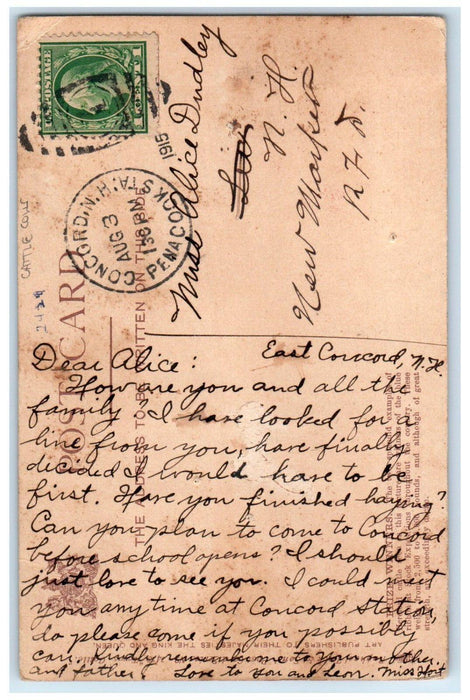 Dear Alice: East Concord, N.H.
How are you and all the
family I have looked for a
line from you, have finally
decided I would have to be
first. Have you finished haying?
Can you plan to come to Concord
before school opens? I should
just love to see you. I could meet
you anytime at Concord Station,
do please come if you possibly
can. Kindly remember me to your mother
and father. Love to you and Leon. Miss Hoit
Miss Alice Dudley
Lee
N. H.
New Market
R F D.
U.S. POSTAGE
CONCORD, N.H.
PENACOOK STA.
AUG 3
1915
CATTLE COW
2424
POST CARD
THE ADDRESS TO BE WRITTEN ON THIS SIDE
ART PUBLISHERS TO THEIR MAJESTIES THE KING AND QUEEN.